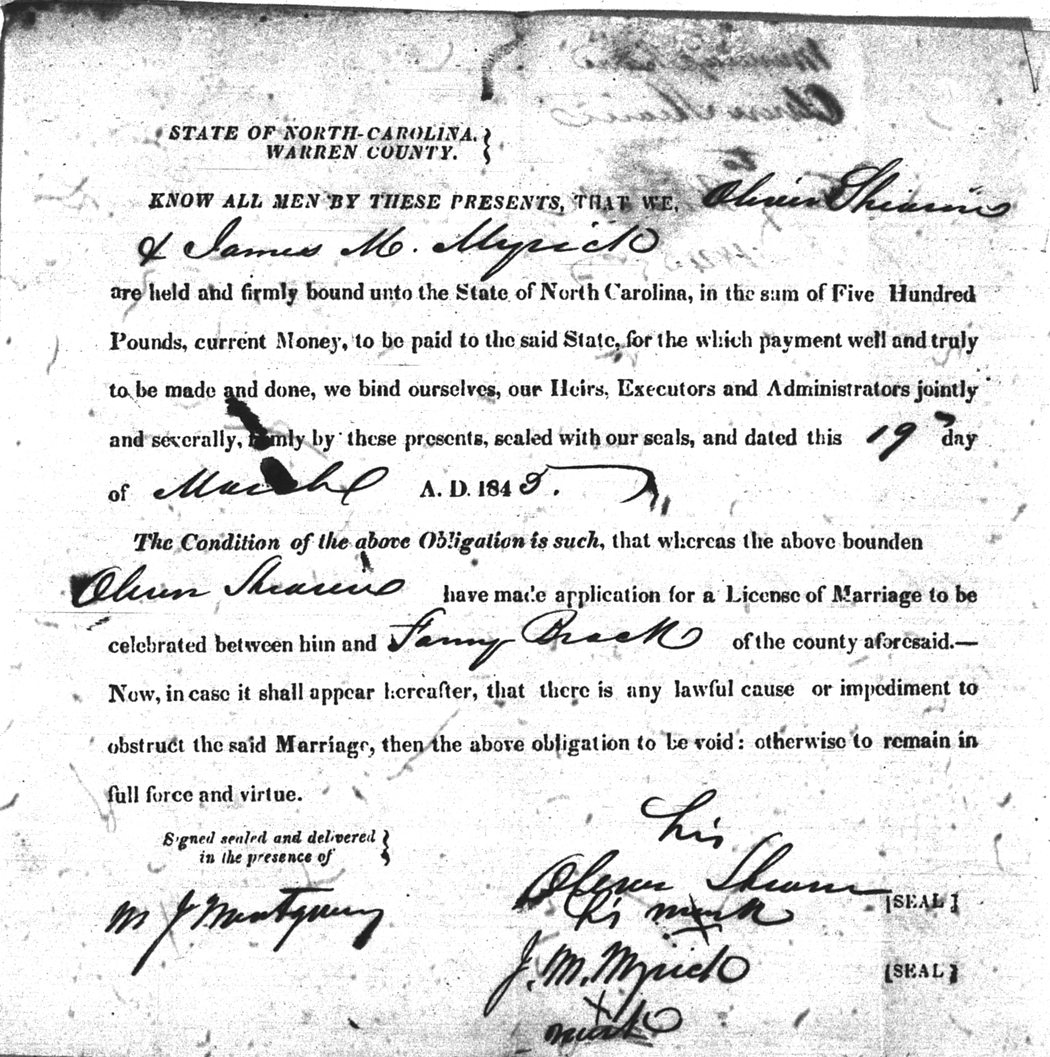 STATE OF NORTH-CAROLINA. }
WARREN COUNTY. }
KNOW ALL MEN BY THESE PRESENTS, THAT WE, Oliver Shearin
& James M. Myrick
are held and firmly bound unto the State of North Carolina, in the sum of Five Hundred
Pounds, current Money, to be paid to the said State, for the which payment well and truly
to be made and done, we bind ourselves, our Heirs, Executors and Administrators jointly
and severally, firmly by these presents, sealed with our seals, and dated this 19 day
of March A. D. 1843.
The Condition of the above Obligation is such, that whereas the above bounden
Oliver Shearin have made application for a License of Marriage to be
celebrated between him and Fanny Brack of the county aforesaid.—
Now, in case it shall appear hereafter, that there is any lawful cause or impediment to
obstruct the said Marriage, then the above obligation to be void: otherwise to remain in
full force and virtue.
Signed sealed and delivered }
in the presence of
his
Oliver Shearin [SEAL]
his mark
M J Montgomery
J. M. Myrick [SEAL]
X
mark